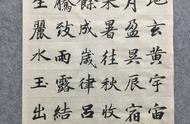 地玄黃宇宙
月盈昃辰宿
來暑往秋收
餘成歲律呂
騰致雨露結
生麗水玉出